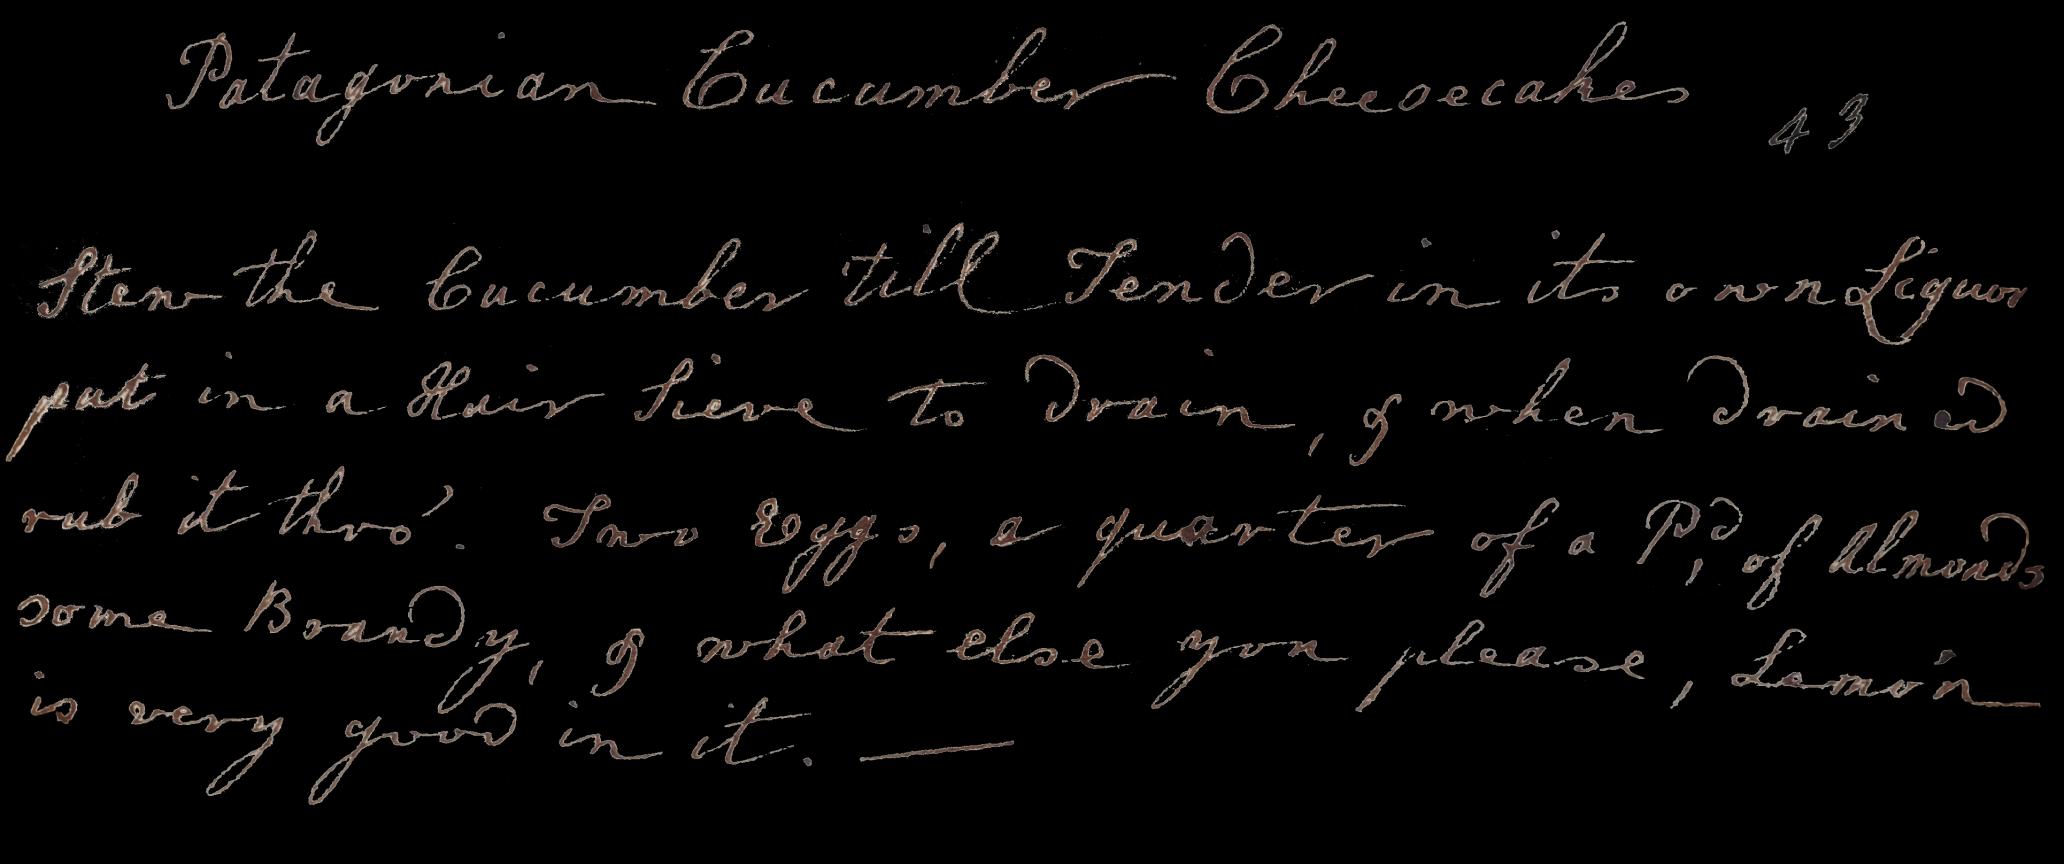 Patagonian Cucumber Cheesecakes
43
Stew the Cucumber till Tender in its own Liquor
put in a Hair Sieve to drain, & when drained
rub it thro'. Two Eggs, a quarter of a P,d of Almonds
some Brandy, & what else you please, Lemon
is very good in it. —